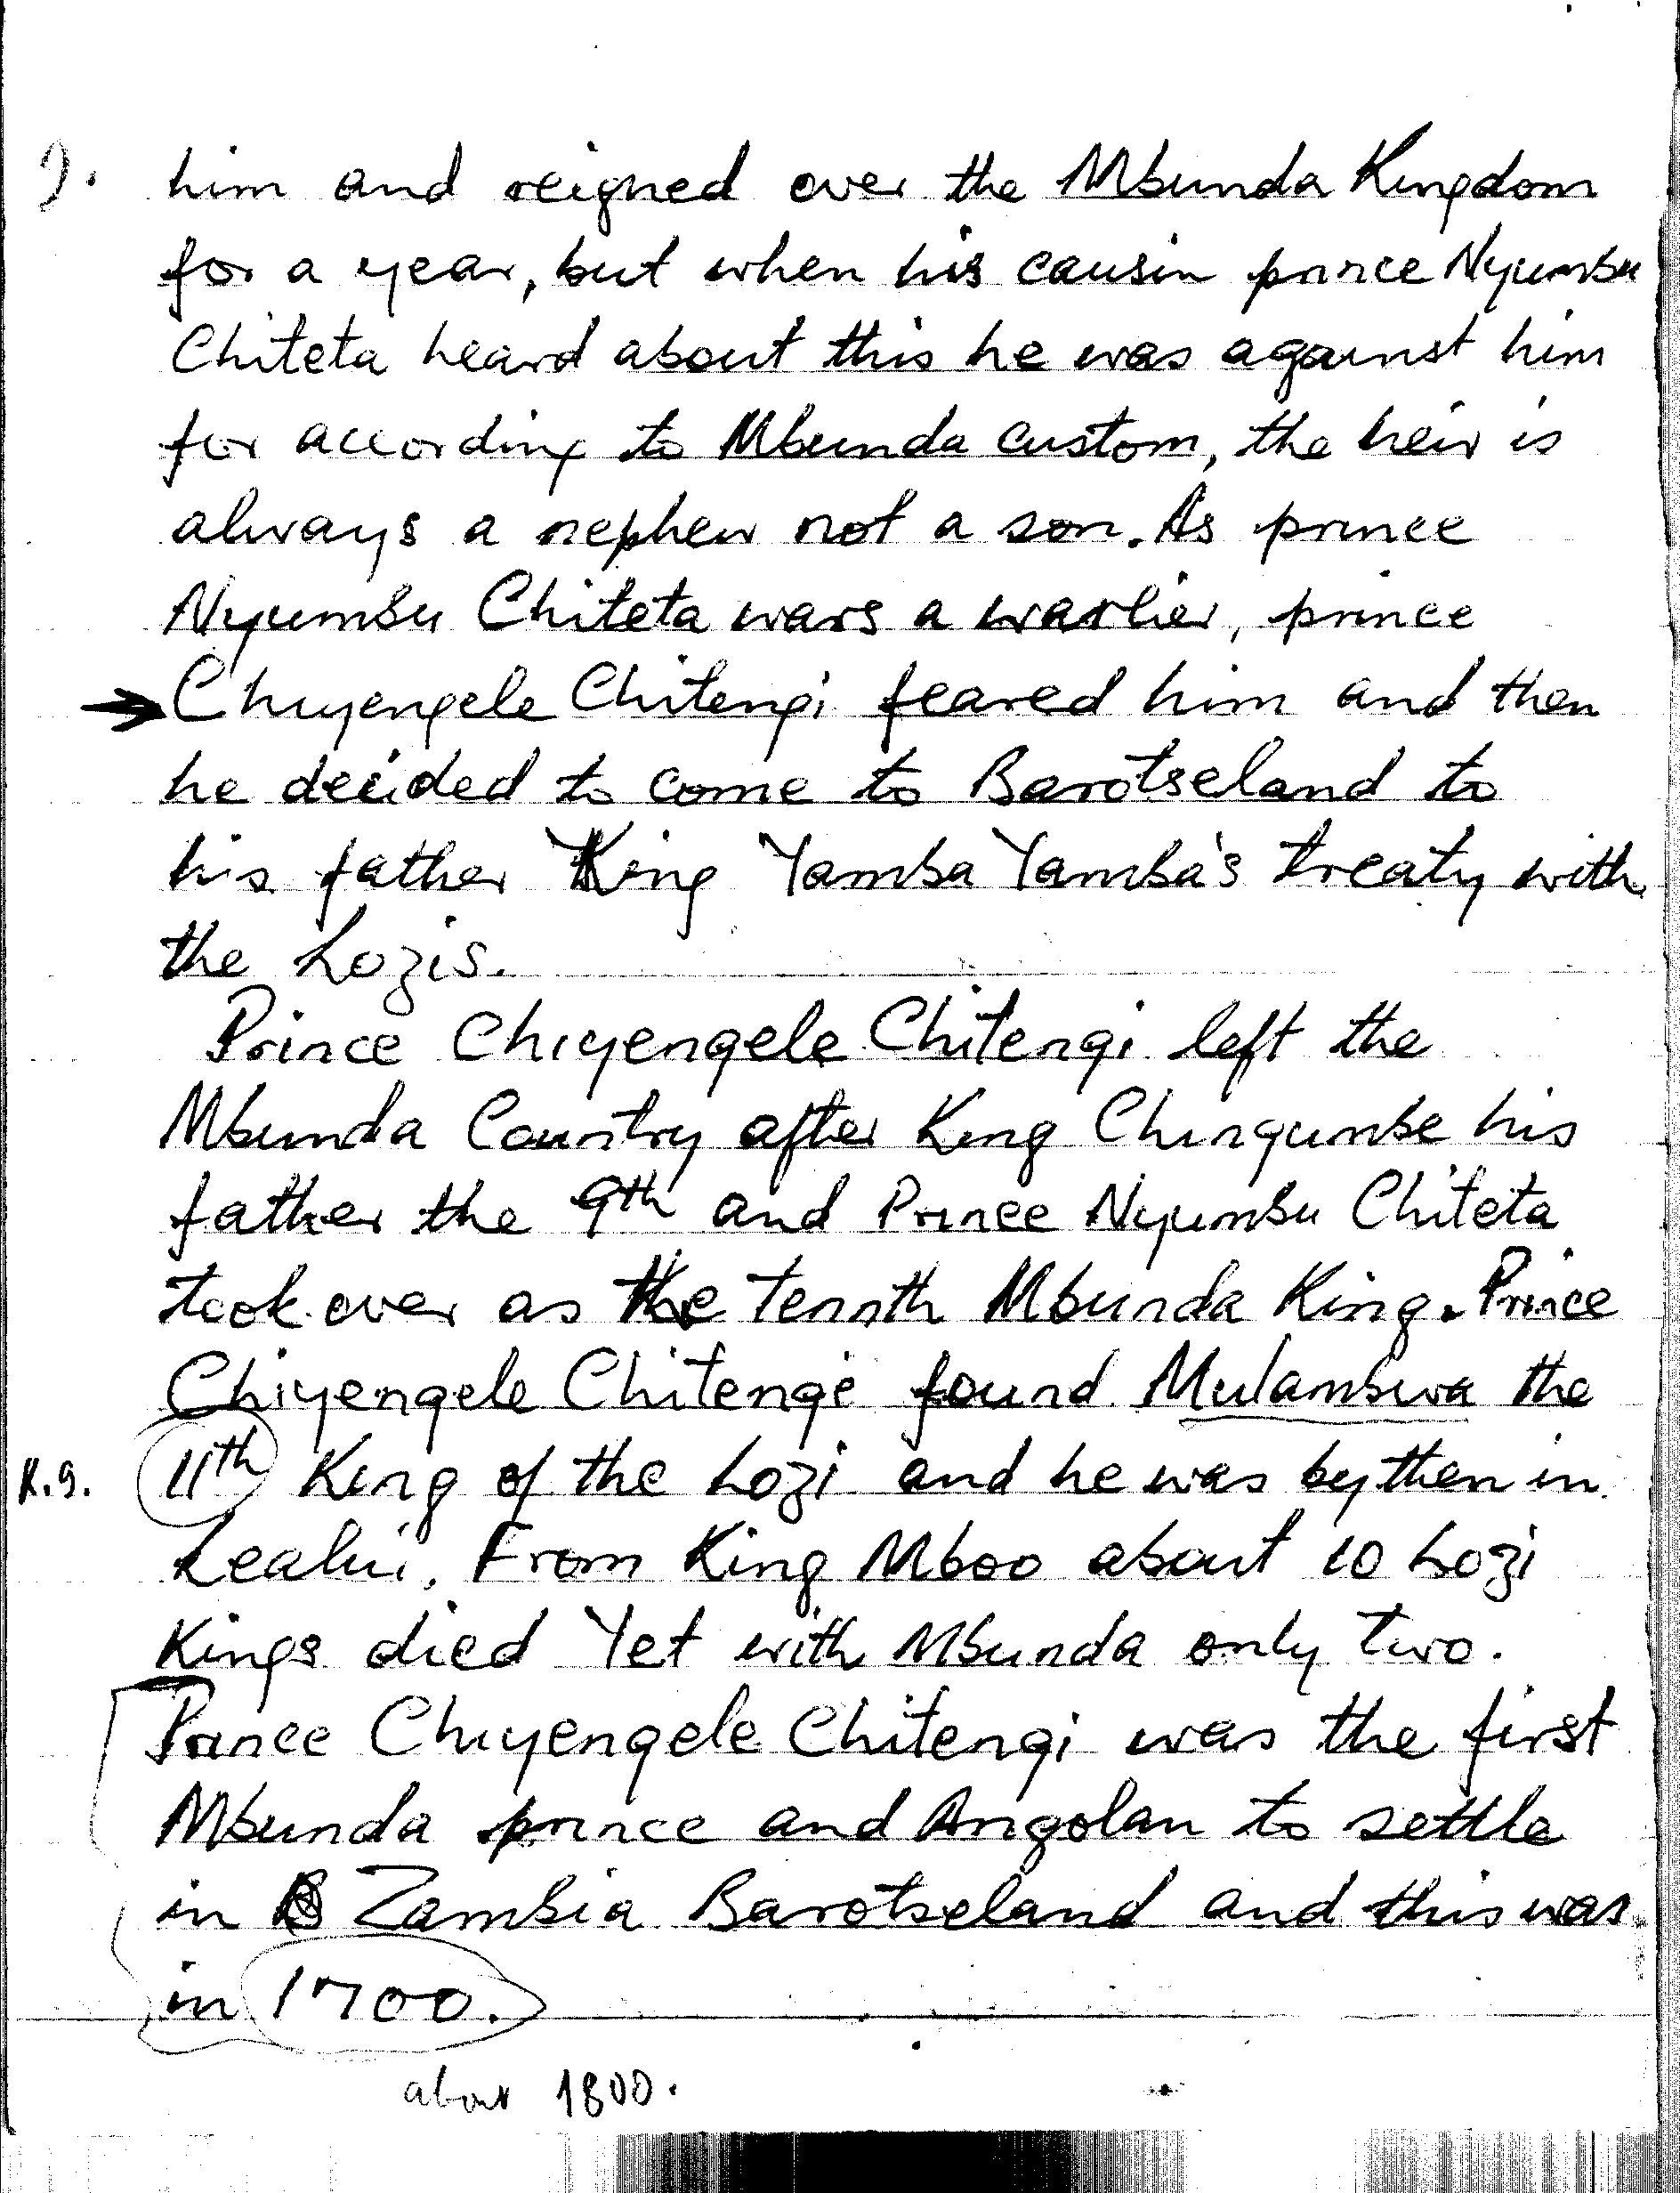 9. him and reigned over the Mbunda Kingdom
for a year, but when his causin prince Nyumbu
Chiteta heard about this he was against him
for according to Mbunda custom, the heir is
always a nephew not a son. As prince
Nyumbu Chiteta wars a warlier, prince
→ Chiyengele Chitengi feared him and then
he decided to come to Barotseland to
his father King Yamba Yamba's treaty with
the Lozis.
Prince Chiyengele Chitengi left the
Mbunda Country after King Chingumbe his
father the 9th and Prince Nyumbu Chiteta
took over as the tennth Mbunda King. Prince
Chiyengele Chitengi found Mulambwa the
K.9. 11th King of the Lozi and he was by then in
Lealui. From King Mboo about 10 Lozi
Kings died Yet with Mbunda only two.
Prince Chiyengele Chitengi was the first
Mbunda prince and Angolan to settle
in Zambia Barotseland and this was
in 1700.
about 1800.